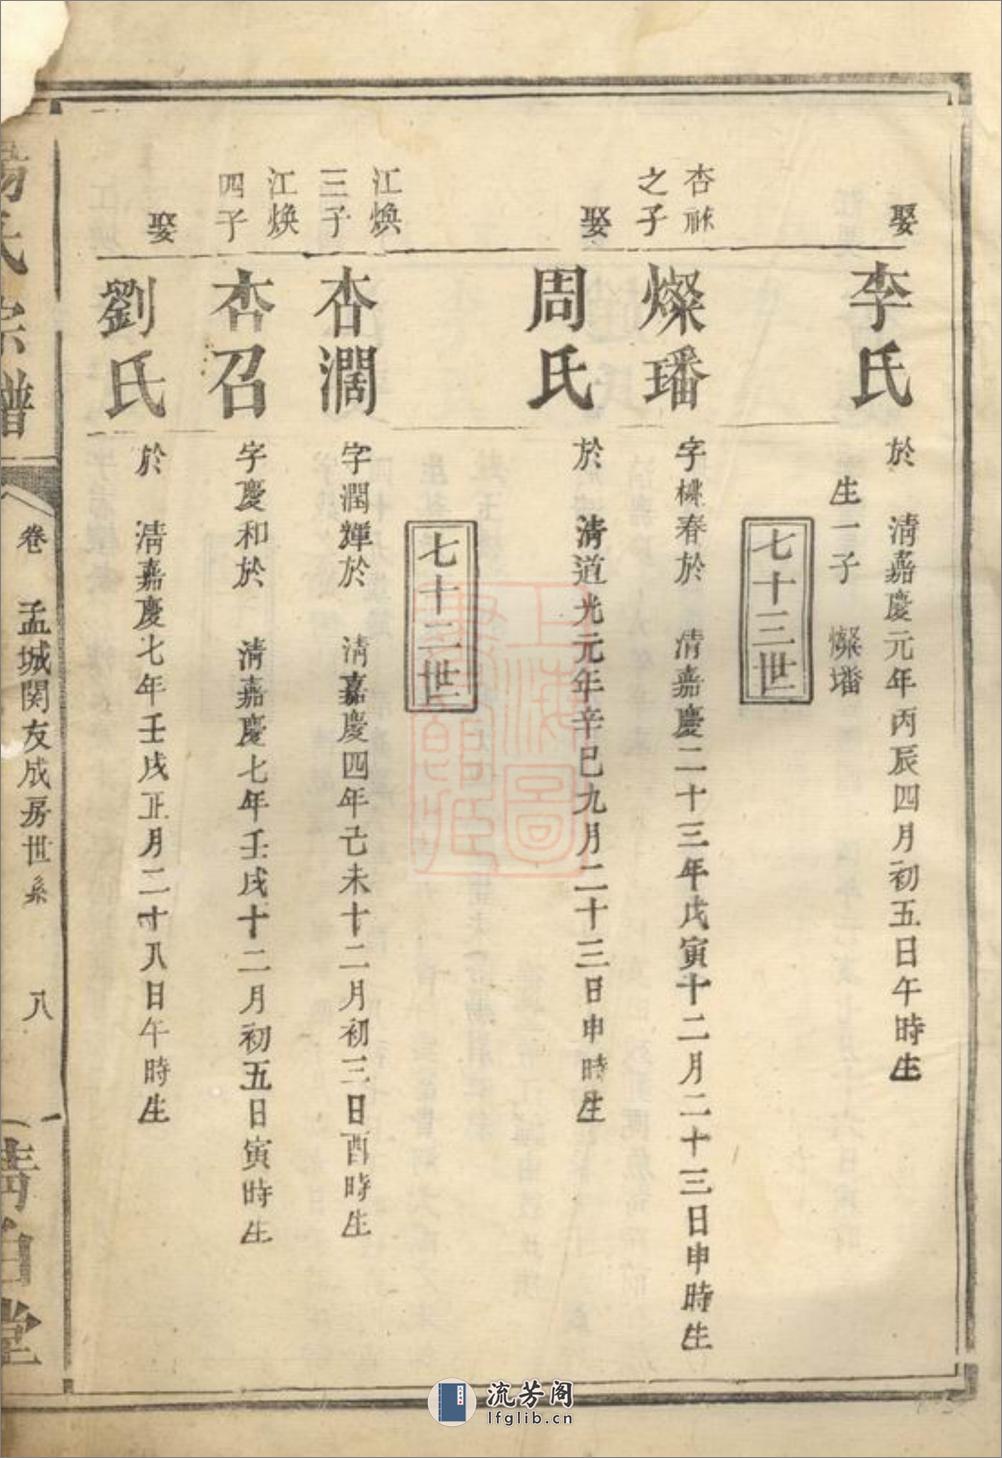 娶 李氏 於 清嘉慶元年丙辰四月初五日午時生
生一子 燦墦
七十三世
杏
之子 燦璠 字桃春於 清嘉慶二十三年戊寅十二月二十三日申時生
娶 周氏 於 清道光元年辛巳九月二十三日申時生
七十二世
江煥
三子 杏濶 字潤輝於 清嘉慶四年己未十二月初三日酉時生
江煥
四子 杏召 字慶和於 清嘉慶七年壬戌十二月初五日寅時生
娶 劉氏 於 清嘉慶七年壬戌正月二十八日午時生
楊氏宗譜
卷 孟城関友成房世系 八
清白堂
上海圖書館藏
流芳阁
lfglib.cn